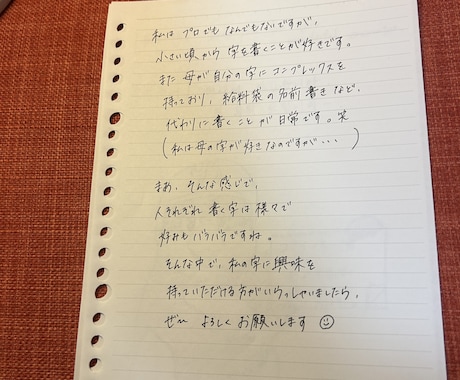 私は プロでも なんでもないですが、
小さい頃から 字を書くことが好きです。
また 母が自分の字にコンプレックスを
持っており、給料袋の名前書きなど、
代わりに書くことが日常です。笑
(私は母の字が好きなのですが・・・)
まあ、そんな感じで、
人それぞれ 書く字は様々で
好みもバラバラですね。
そんな中で、私の字に興味を
持っていただける方がいらっしゃいましたら、
ぜひ よろしく お願いします ☺